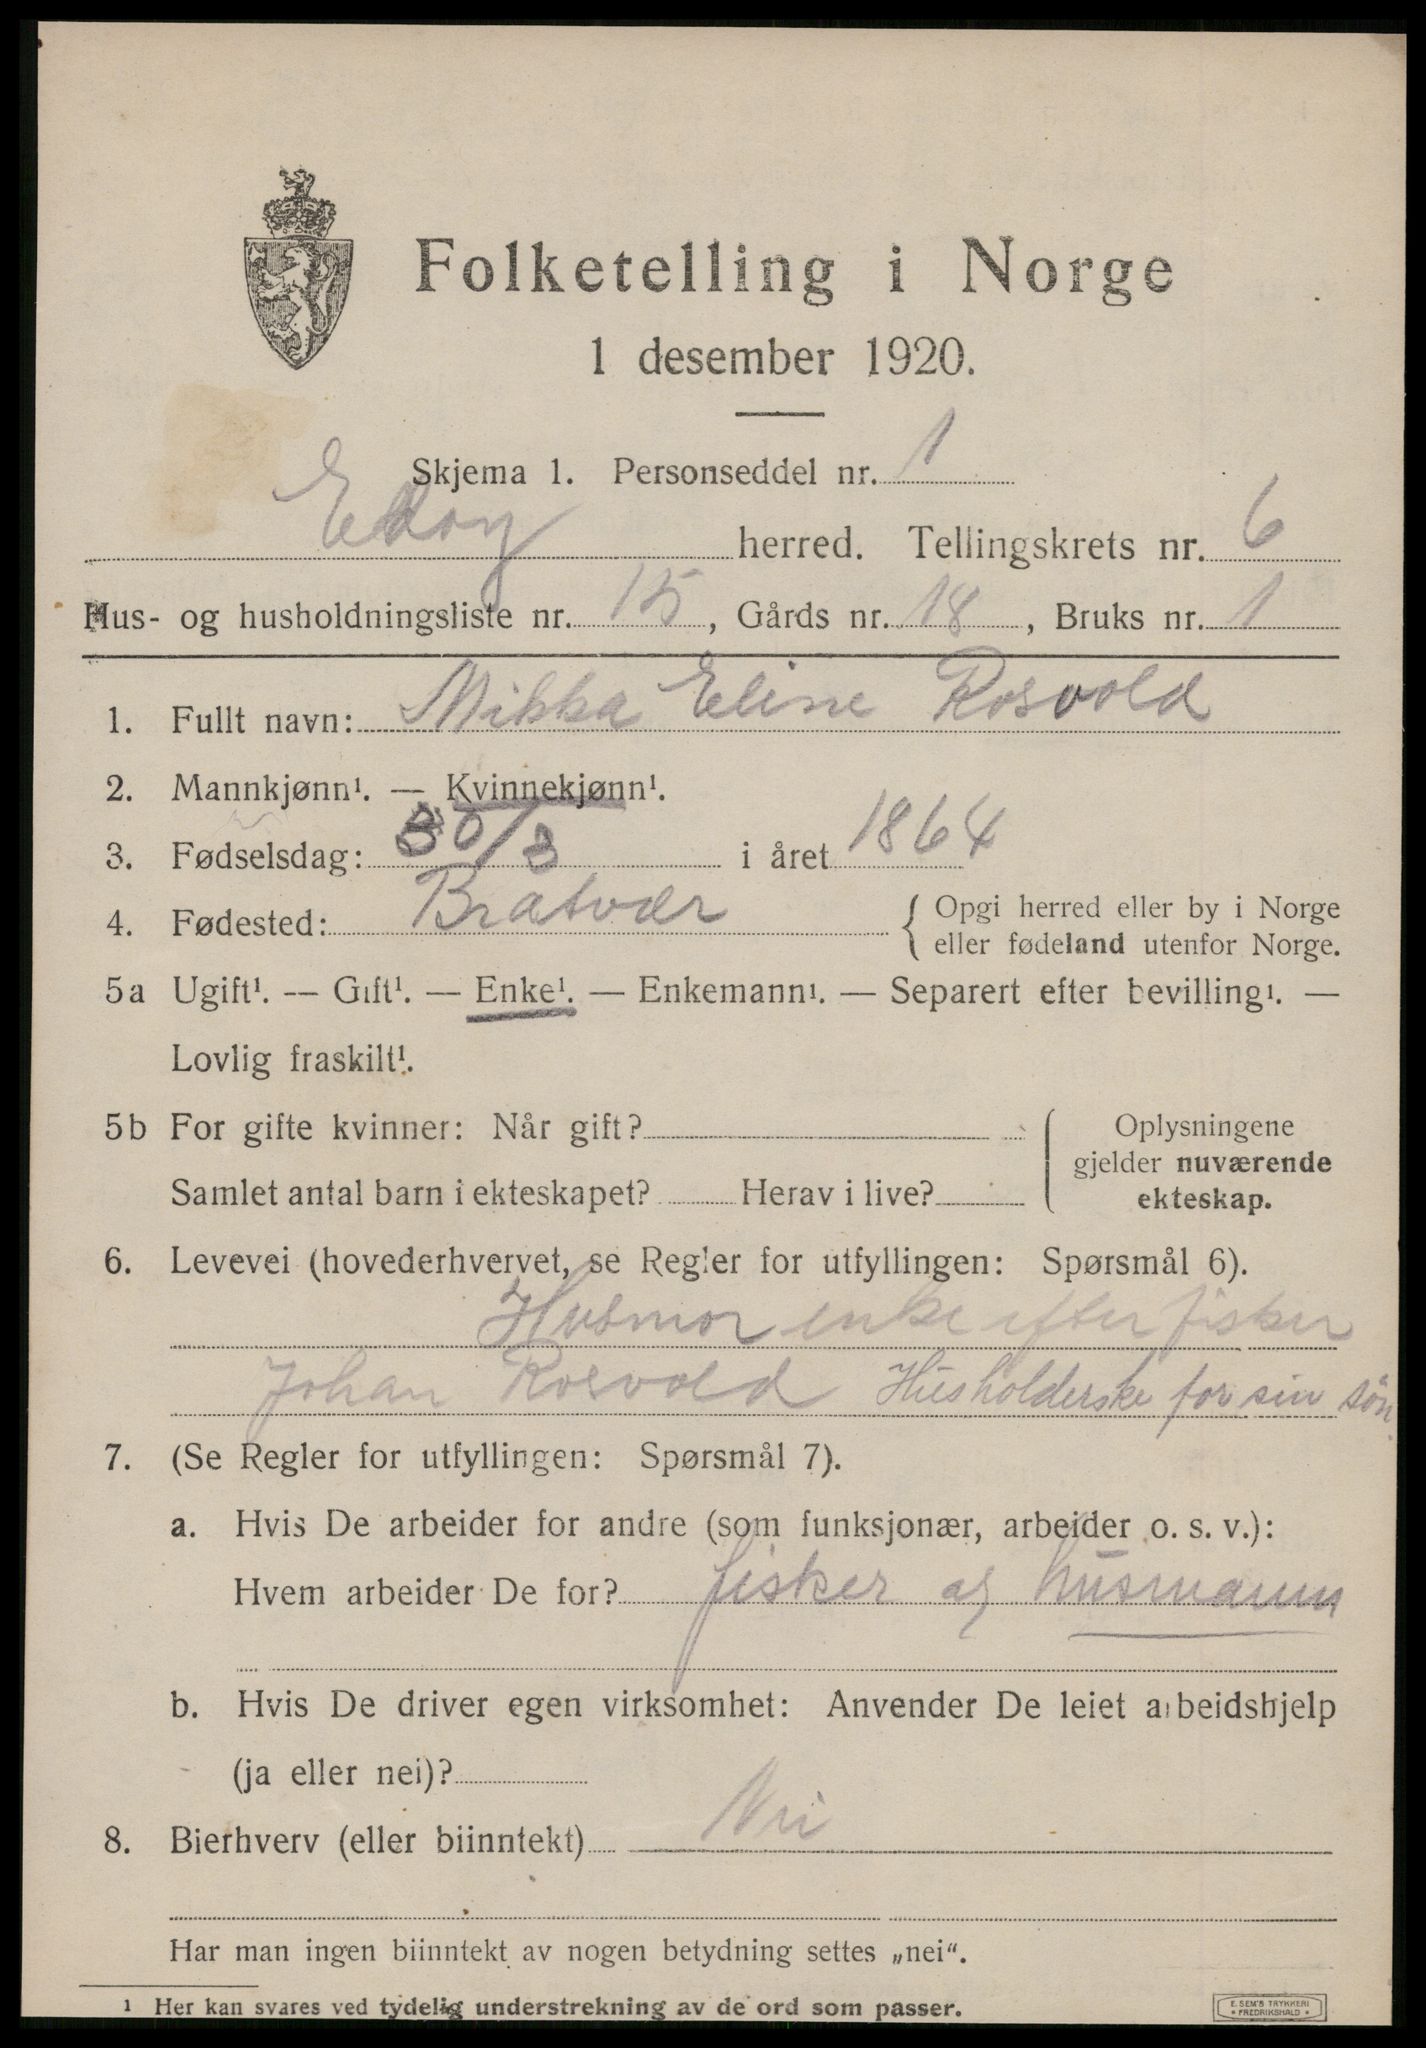 Folketelling i Norge
1 desember 1920.
Skjema 1. Personseddel nr. 1
Edøy herred. Tellingskrets nr. 6
Hus- og husholdningsliste nr. 15, Gårds nr. 18, Bruks nr. 1
1. Fullt navn: Mikka Eline Rosvold
2. Mannkjønn¹. — Kvinnekjønn¹.
3. Fødselsdag: 30/3 i året 1864
4. Fødested: Bratvær { Opgi herred eller by i Norge
eller fødeland utenfor Norge.
5a Ugift¹. — Gift¹. — Enke¹. — Enkemann¹. — Separert efter bevilling¹. —
Lovlig fraskilt¹.
5b For gifte kvinner: Når gift? { Oplysningene
gjelder nuværende
Samlet antal barn i ekteskapet? Herav i live? ekteskap.
6. Levevei (hovederhvervet, se Regler for utfyllingen: Spørsmål 6).
Husmor enke efter fisker
Johan Rosvold Husholderske for sin søn.
7. (Se Regler for utfyllingen: Spørsmål 7).
a. Hvis De arbeider for andre (som funksjonær, arbeider o. s. v.):
Hvem arbeider De for? fisker og husmann
b. Hvis De driver egen virksomhet: Anvender De leiet arbeidshjelp
(ja eller nei)?
8. Bierhverv (eller biinntekt) Nei
Har man ingen biinntekt av nogen betydning settes „nei“.
¹ Her kan svares ved tydelig understrekning av de ord som passer.
E. SEM'S TRYKKERI
* FREDRIKSHALD *